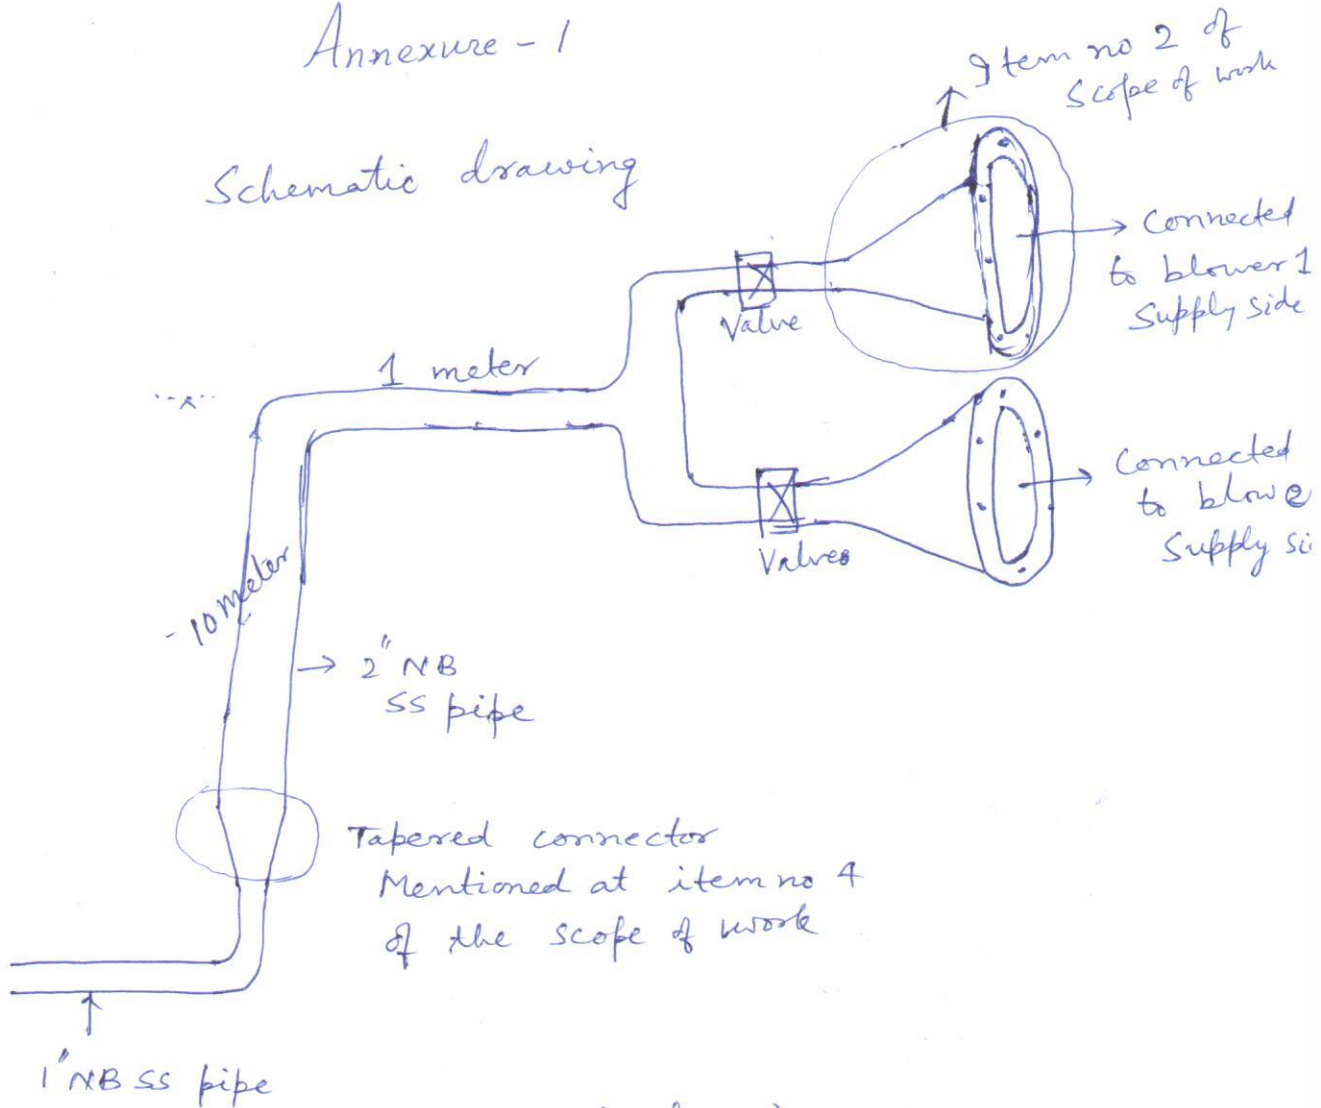 Annexure - 1
Item no 2 of
scope of work
Schematic drawing
Connected
to blower 1
Supply side
Valve
1 meter
Connected
to blowe
Supply si
Valves
10 meter
2" NB
SS pipe
Tapered connector
Mentioned at item no 4
of the scope of work
1" NB SS pipe